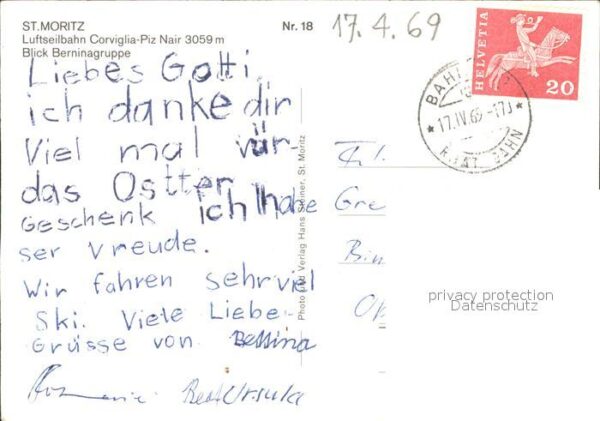 ST. MORITZ
Luftseilbahn Corviglia-Piz Nair 3059 m
Blick Berninagruppe
Nr. 18
17.4.69
HELVETIA
20
17.IV.69-17
Liebes Gotti
ich danke dir
Viel mal vür
das Ostter
Geschenk ich habe
ser vreude.
Wir fahren sehr viel
Ski. Viele Liebe
Grüsse von Bettina
Beat Ursula
Photo und Verlag Hans Steiner, St. Moritz
Frl.
Gre
Bin
privacy protection
Datenschutz